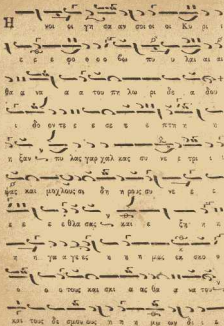 Η νοι οι γη σα αν σοι οι οι Κυ ρι ι
ε ε ε φο ο ο βω πυ υ λαι αι αι
θα α να α α του πυ λω ρι δε α δου
ι δο ον τε ε ε σε ε ε πτη η
η ξαν πυ λας γαρ χαλ κας συ νε ε τρι ι
ψας και μοχλους σι δη η ρους συ νε ε
ε ε ε θλα σας και ε ξη η η
η η γα α γες η η μας εκ σκο ο
ο ο τους και σκι α ας θα να α του
και τους δε σμους ους η η μω ων δι ε